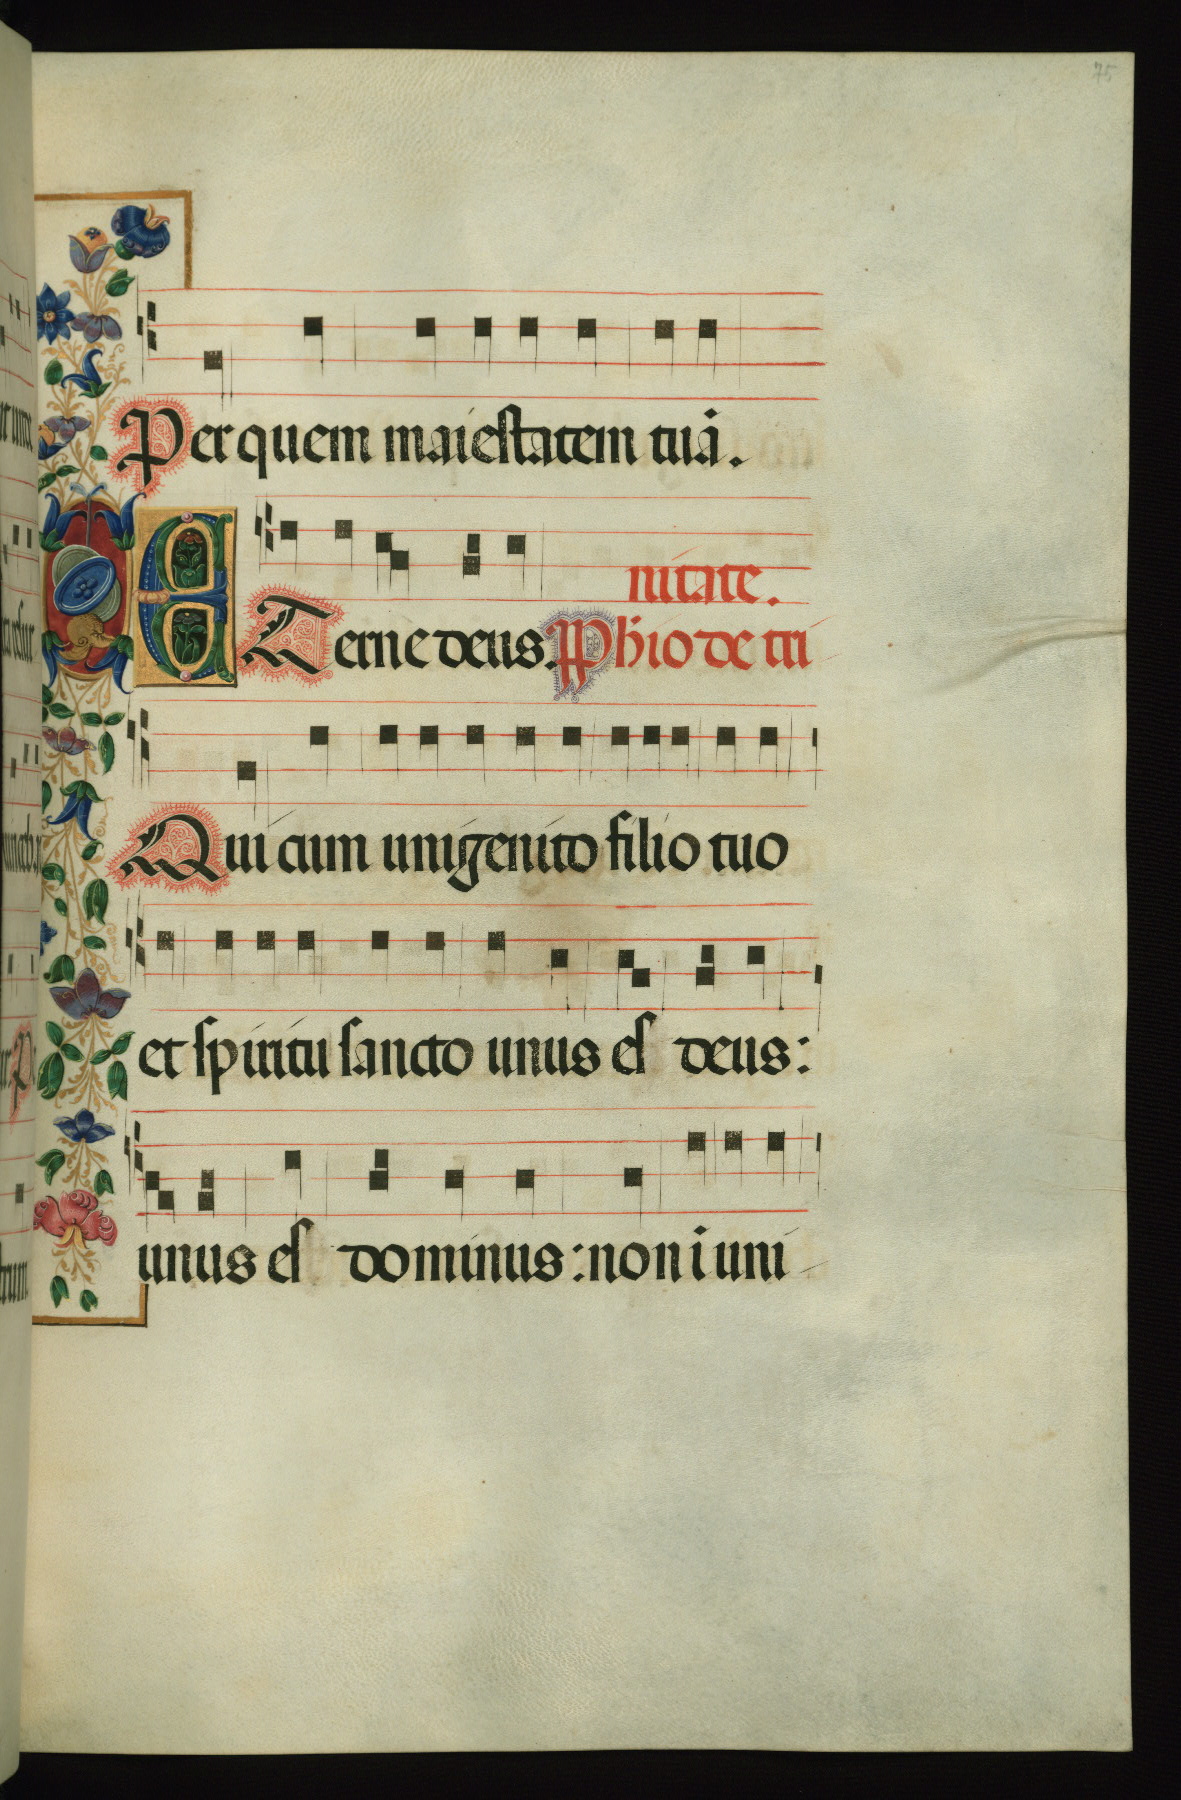 75
Per quem maiestatem tuā.
nitate.
ETerne deus. Pħio de tri
Qui cum unigenito filio tuo
et spiritu sancto unus es deus:
unus es dominus: non i uni